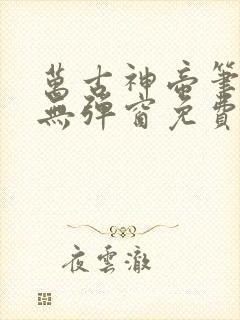 萬古神帝筆
無彈窗免費
夜雲澈